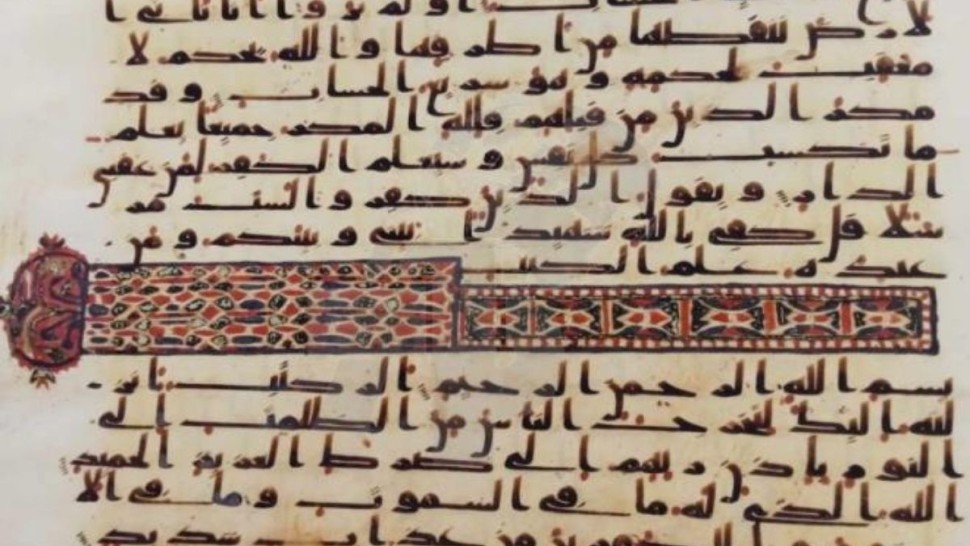 الحساب او لم يروا انا ناتى ا
لارض ننقصها من اطرفها والله يحكم لا
معقب لحكمه وهو سريع الحساب وقد
مكر الذين من قبلهم فلله المكر جميعا يعلم
ما تكسب كل نفس وسيعلم الكفر لمن عقبى
الدار ويقول الذين كفروا لست مر
سلا قل كفى بالله شهيدا بينى وبينكم ومن
عنده علم الكتب
بسم الله الرحمن الرحيم الر كتب انز
لنه اليك لتخرج الناس من الظلمت الى
النور باذن ربهم الى صرط العزيز الحميد
الله الذى له ما فى السموت وما فى الا
رض وويل للكفرين من عذاب شديد